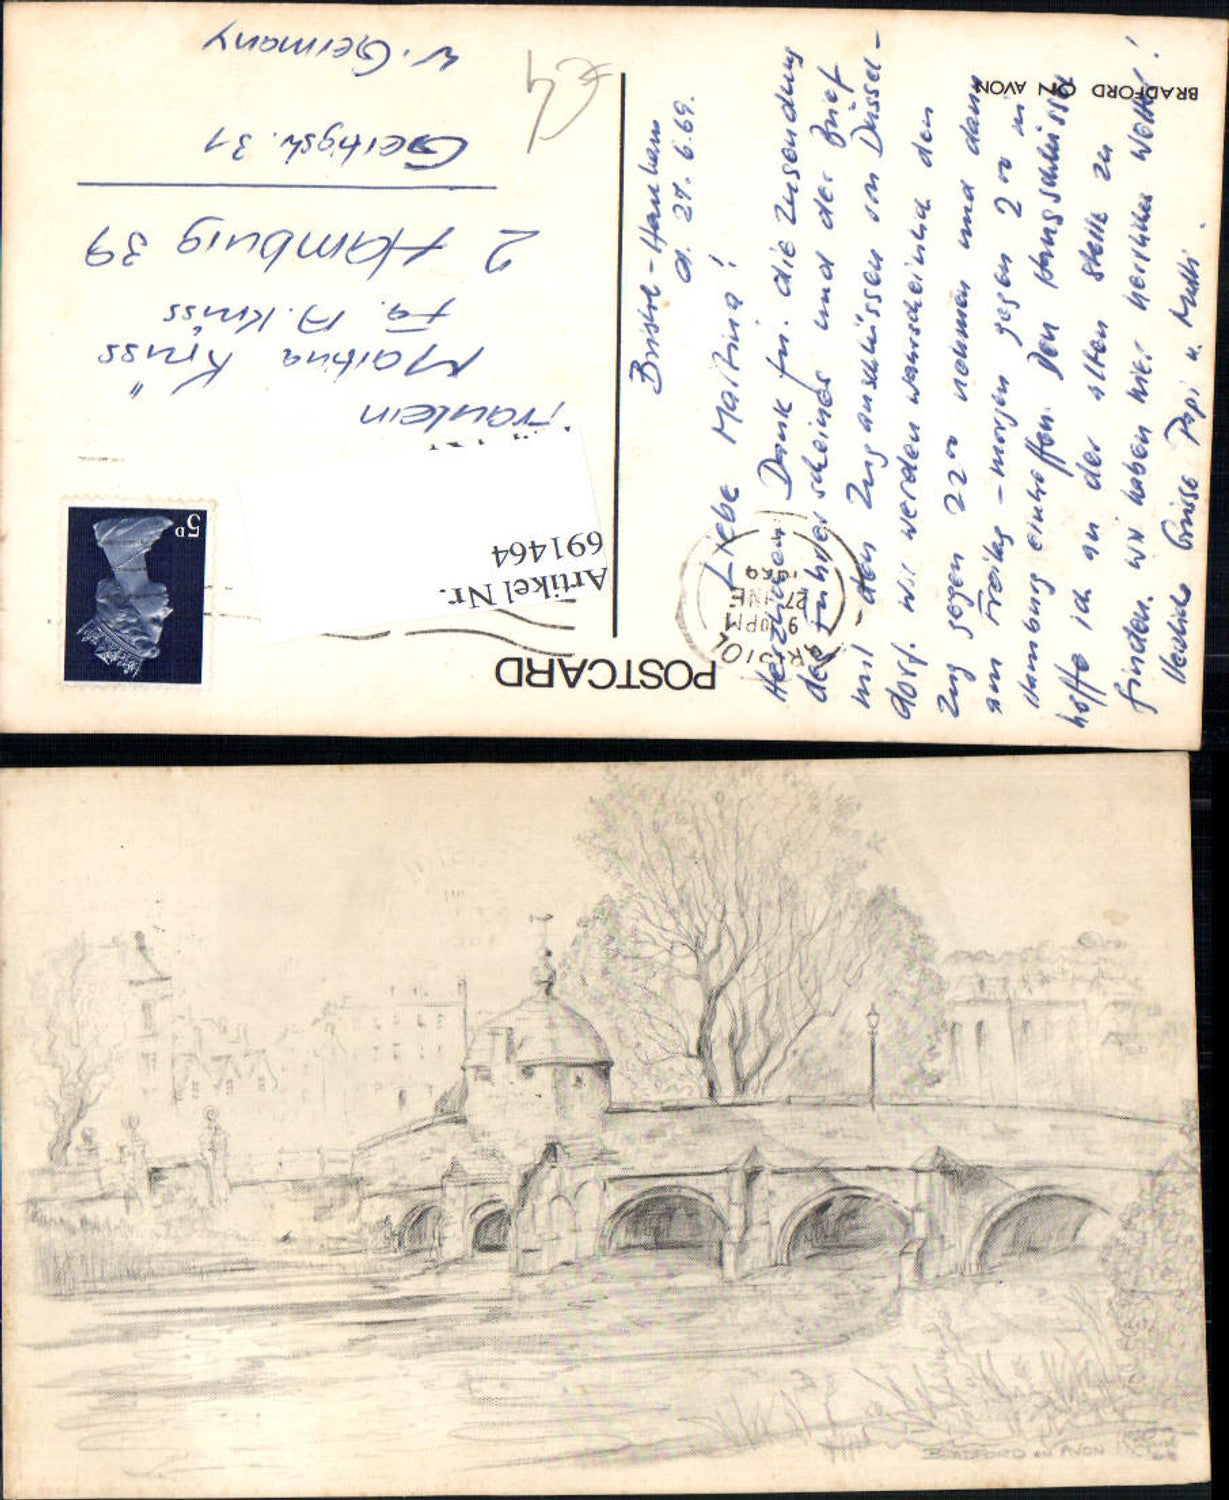 BRADFORD ON AVON
Bristol-Hanham
d. 27.6.69.
Liebe Martina!
Herzlichen Dank für die Zusendung
des Führerscheines und der Brief
mit den Zuganschlüssen von Düssel-
dorf. Wir werden wahrscheinlich den
Zug gegen 22 00 nehmen und dann
am Freitag-morgen gegen 2 00 in
Hamburg eintreffen. Den Hausschlüssel
hoffe ich an der alten Stelle zu
finden. Wir haben hier herrliches Wetter!
Herzliche Grüsse Papi u. Mutti.
POSTCARD
BRISTOL
9 10PM
27 JNE
1969
5D
Artikel Nr.
691464
Fräulein
Martina Krüss
Fa. A. Krüss
2 Hamburg 39
Gertigstr. 31
W. Germany
£4
BRADFORD ON AVON
68